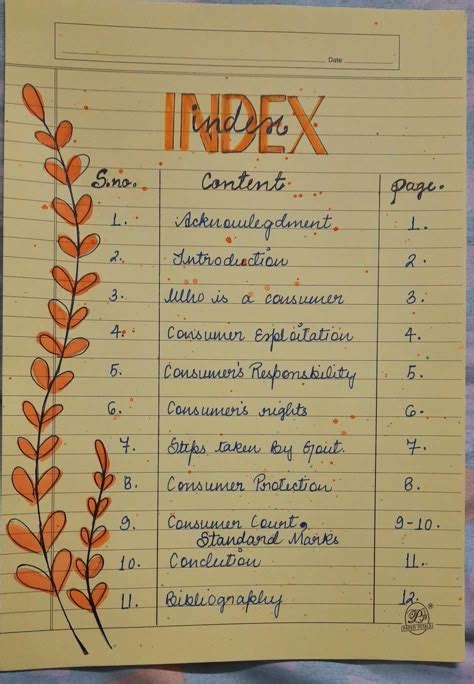 Date
INDEX
index
S.no. Content page.
1. Acknowlegdment 1.
2. Introduction 2.
3. Who is a consumer 3.
4. Consumer Exploitation 4.
5. Consumer's Responsbility 5.
6. Consumer's rights 6.
7. Steps taken by Govt. 7.
8. Consumer Protection 8.
9. Consumer Court, 9-10.
Standard Marks
10. Conclution 11.
11. Bibliography 12.